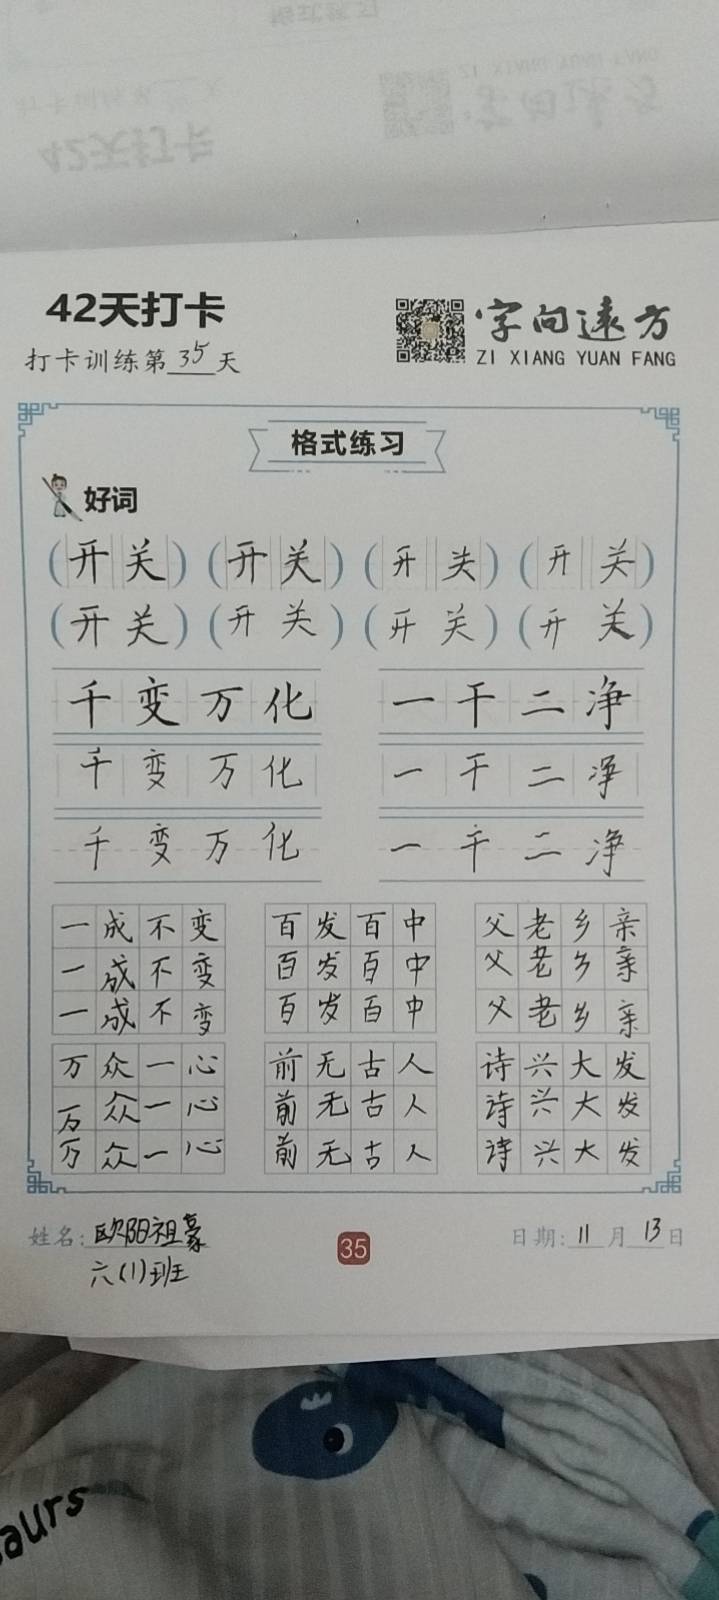 格式练习
42天打卡
42天打卡 字向远方
打卡训练第35天 ZI XIANG YUAN FANG
格式练习
好词
(开关) (开关) (开关) (开关)
(开关) (开关) (开关) (开关)
千变万化 一干二净
千变万化 一干二净
千变万化 一干二净
一成不变 百发百中 父老乡亲
一成不变 百发百中 父老乡亲
一成不变 百发百中 父老乡亲
万众一心 前无古人 诗兴大发
万众一心 前无古人 诗兴大发
万众一心 前无古人 诗兴大发
姓名:欧阳祖豪 35 日期:11月13日
六(1)班
aurs